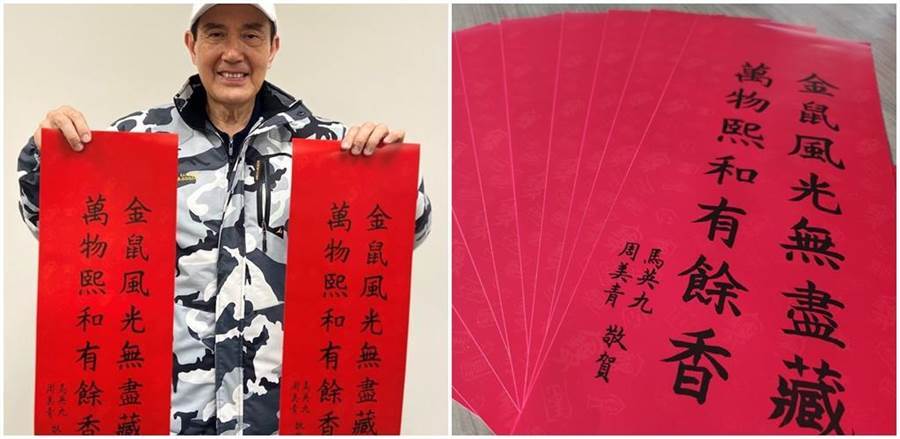 金鼠風光無盡藏
萬物熙和有餘香
馬英九
周美青 敬
金鼠風光無盡藏
萬物熙和有餘香
馬英九
周美青 敬
金鼠風光無盡藏
萬物熙和有餘香
馬英九
周美青 敬賀